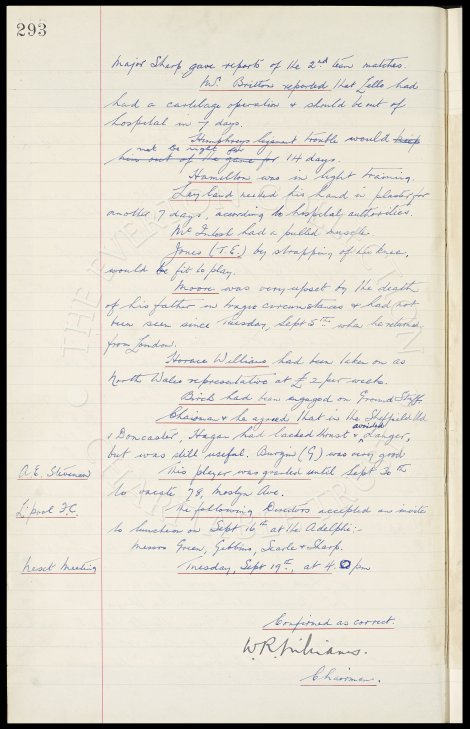 293
Major Sharp gave reports of the 2nd team matches.
Mr. Britton reported that Lello had
had a cartilage operation & should be out of
hospital in 7 days.
Humphreys ligament trouble would keep
not be right for
him out of the game for 14 days.
Hamilton was in light training.
Leyland needed his hand in plaster for
another 7 days, according to hospital authorities.
Mc Intosh had a pulled muscle.
Jones (T.E.) by strapping of his knee,
would be fit to play.
Moore was very upset by the death
of his father in tragic circumstances & had not
been seen since Tuesday, Sept 5th when he returned
from London.
Horace Williams had been taken on as
North Wales representative at £2 per week.
Birch had been engaged on Ground Staff
Chairman & he agreed that in the Sheffield Utd
avoided
& Doncaster, Hagan had lacked thrust & danger,
but was still useful. Burgin (G) was very good
A.E. Stevenson
This player was granted until Sept 30th
to vacate 78, Mostyn Ave.
L'pool F.C.
The following Directors accepted an invite
to luncheon on Sept 16th at the Adelphi:-
Messrs Green, Gibbins, Searle & Sharp.
Next Meeting
Tuesday, Sept 19th, at 4. 0 pm
Confirmed as correct.
W.R. Williams.
Chairman.